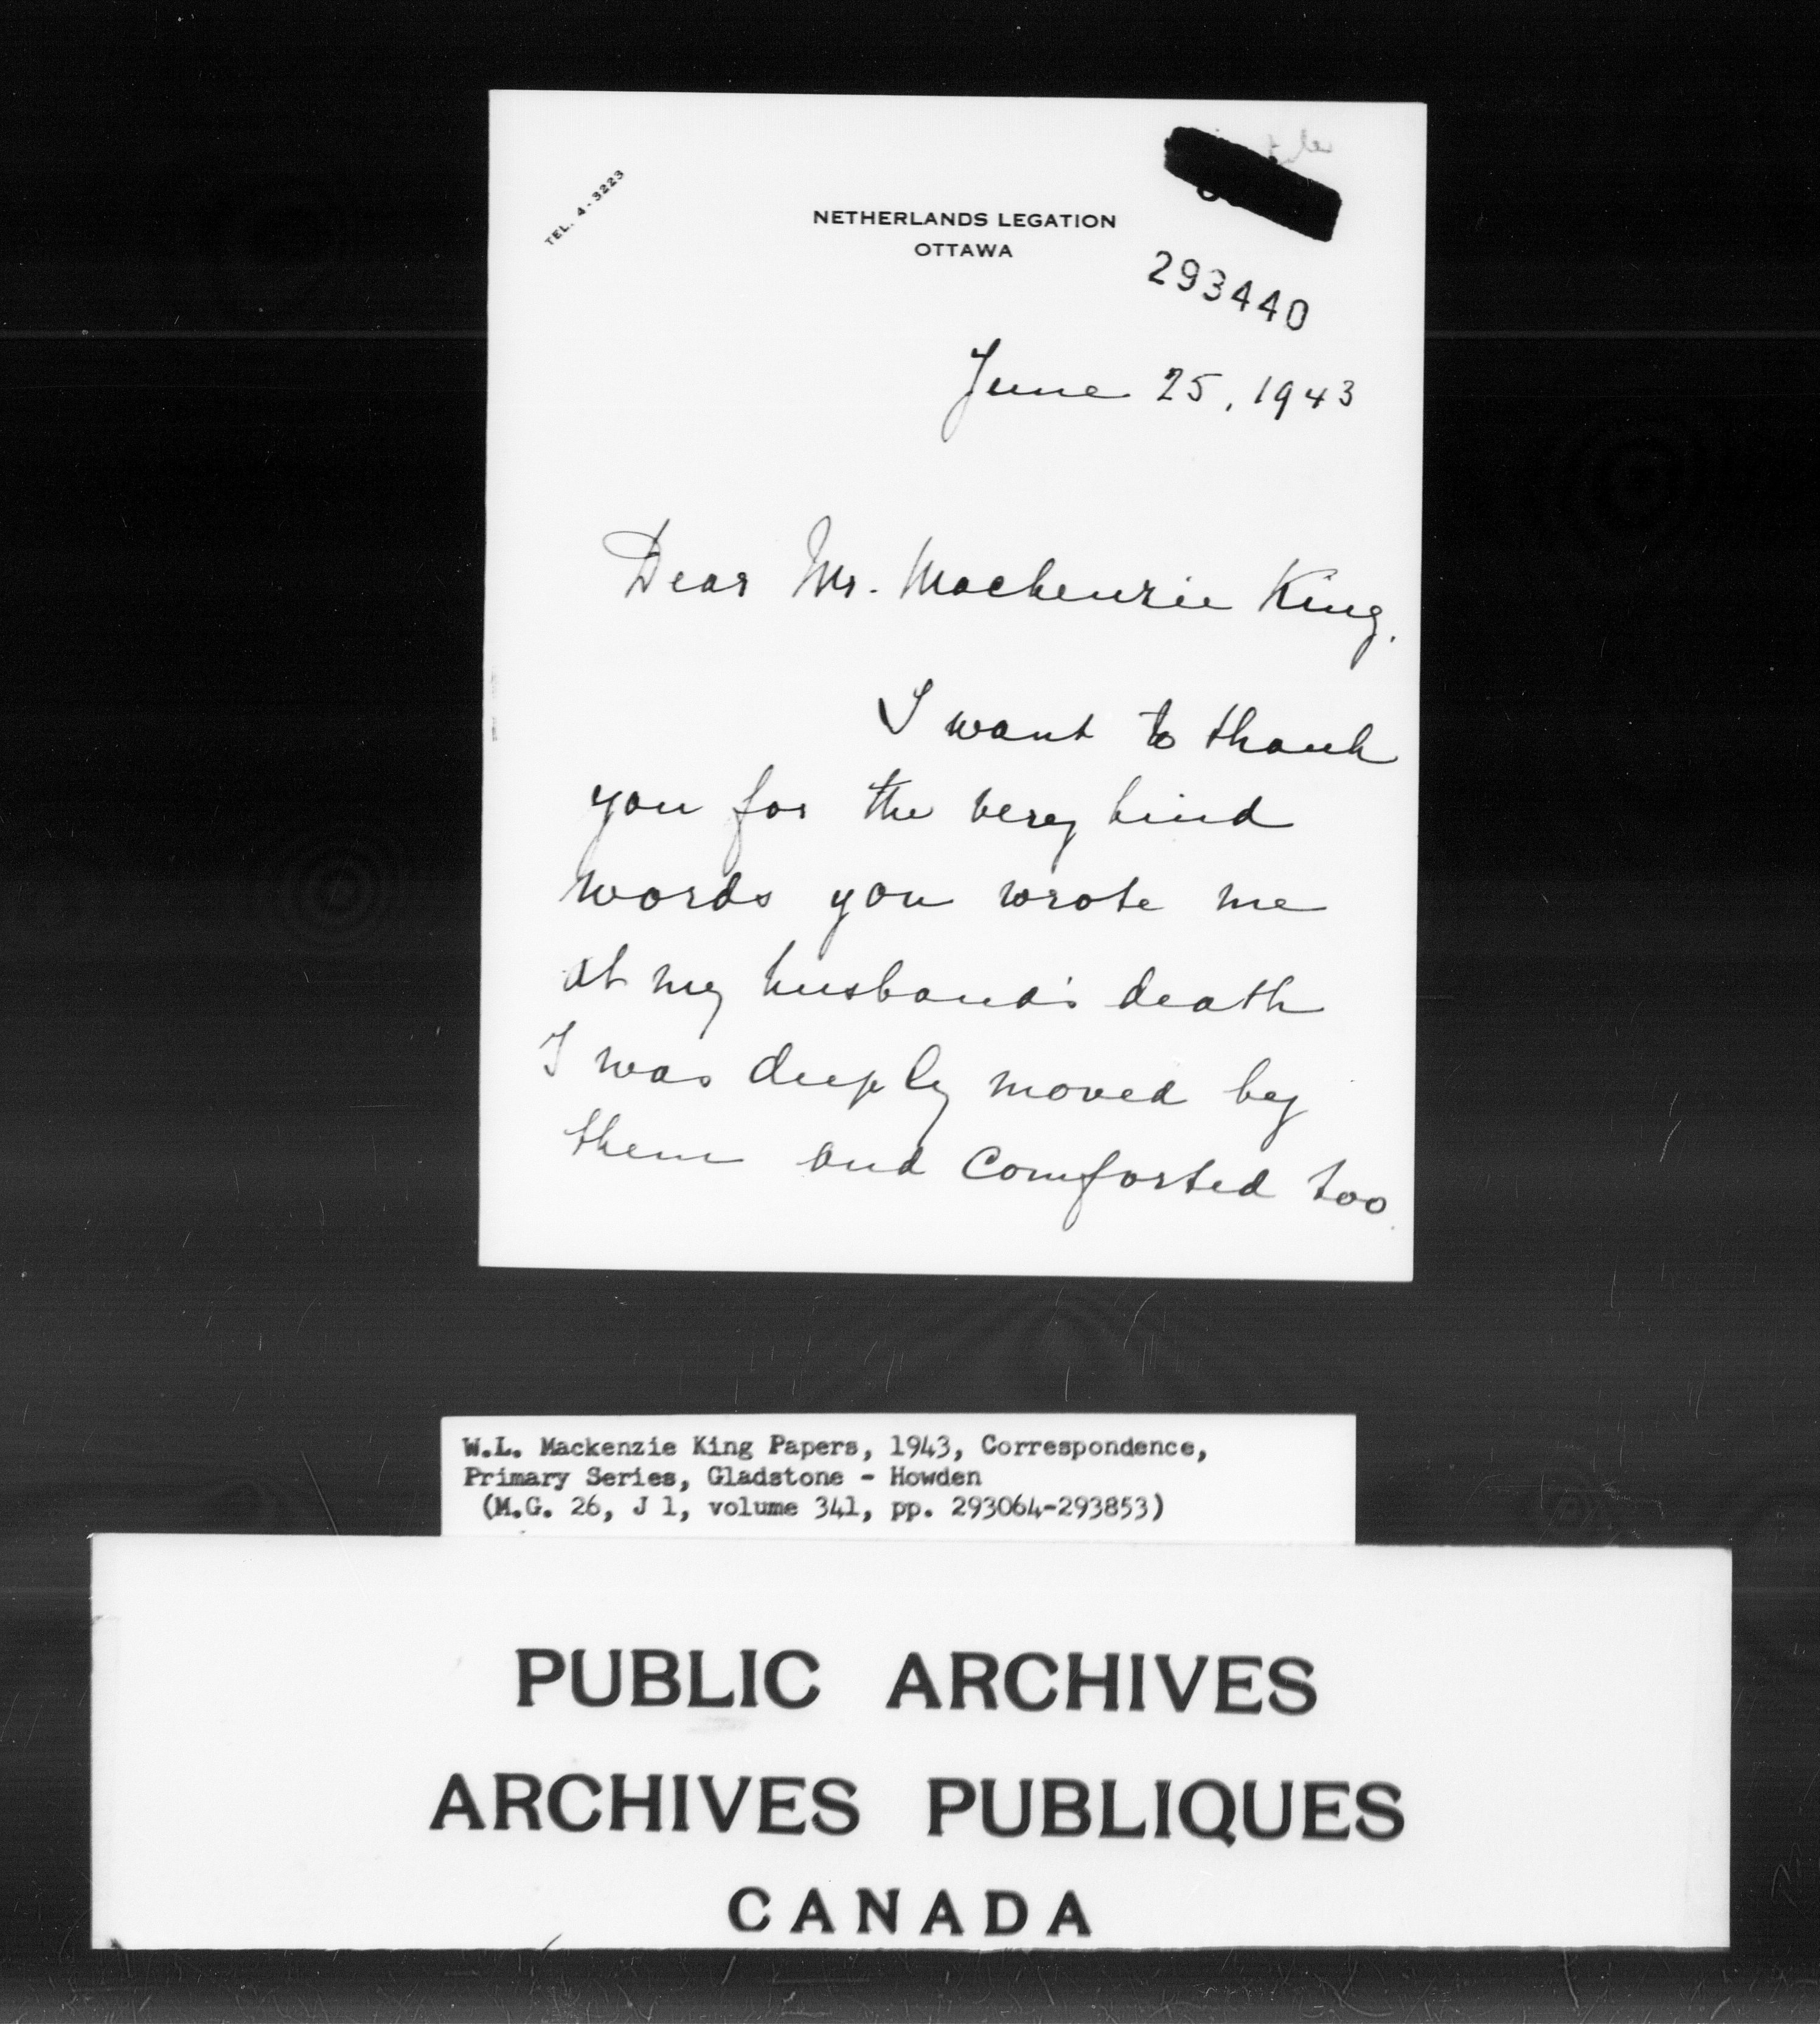 TEL. 4-3223
NETHERLANDS LEGATION
OTTAWA
293440
June 25, 1943
Dear Mr. Mackenzie King.
I want to thank
you for the very kind
words you wrote me
at my husband's death
I was deeply moved by
them and comforted too.
W.L. Mackenzie King Papers, 1943, Correspondence,
Primary Series, Gladstone - Howden
(M.G. 26, J 1, volume 341, pp. 293064-293853)
PUBLIC ARCHIVES
ARCHIVES PUBLIQUES
CANADA